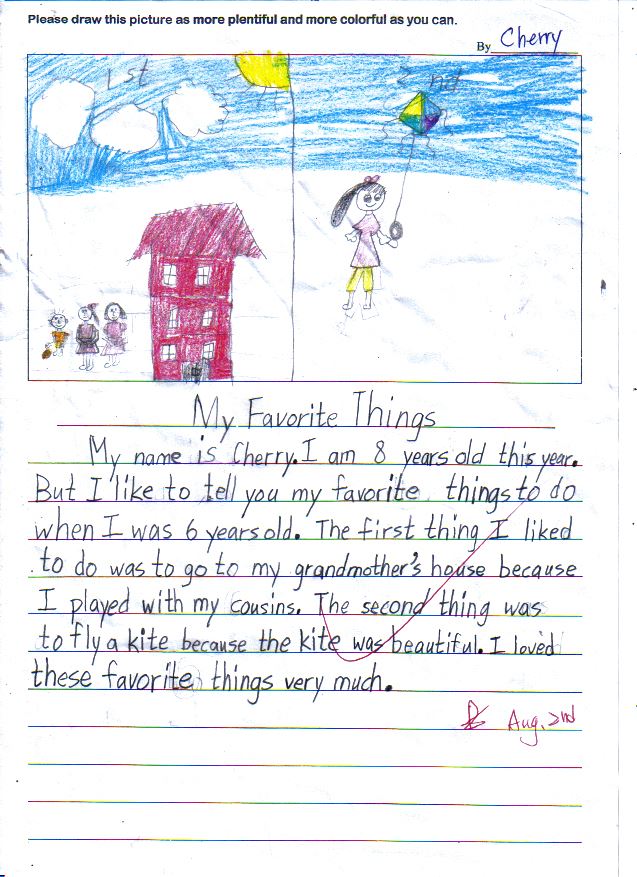 Please draw this picture as more plentiful and more colorful as you can.
By Cherry
1st
2nd
My Favorite Things
My name is Cherry. I am 8 years old this year.
But I like to tell you my favorite things to do
when I was 6 years old. The first thing I liked
to do was to go to my grandmother's house because
I played with my cousins. The second thing was
to fly a kite because the kite was beautiful. I loved
these favorite things very much.
Aug. 2nd